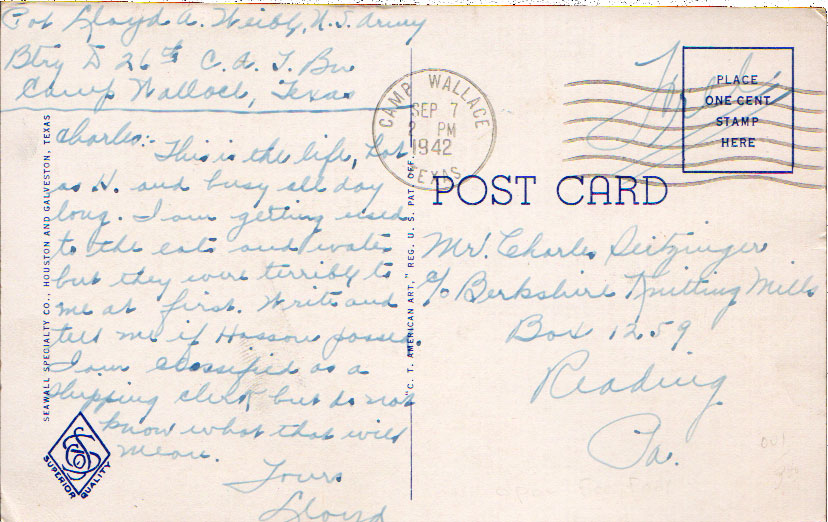 Pvt Lloyd A. Weibly, U.S. Army
Btry D 26th C. A. T. Bn
Camp Wallace, Texas
Charles:
This is the life, hot
as H. and busy all day
long. I am getting used
to the eats and water
but they were terrible to
me at first. Write and
tell me if Hasson passed.
I am classified as a
shipping clerk but do not
know what that will
mean.
Yours
Lloyd
SEAWALL SPECIALTY CO., HOUSTON AND GALVESTON, TEXAS
SUPERIOR QUALITY
"C. T. AMERICAN ART," REG. U. S. PAT. OFF.
CAMP WALLACE
SEP 7
PM
1942
TEXAS
Free
PLACE
ONE CENT
STAMP
HERE
POST CARD
Mr. Charles Deitzinger
c/o Berkshire Knitting Mills
Box 1259
Reading
Pa.